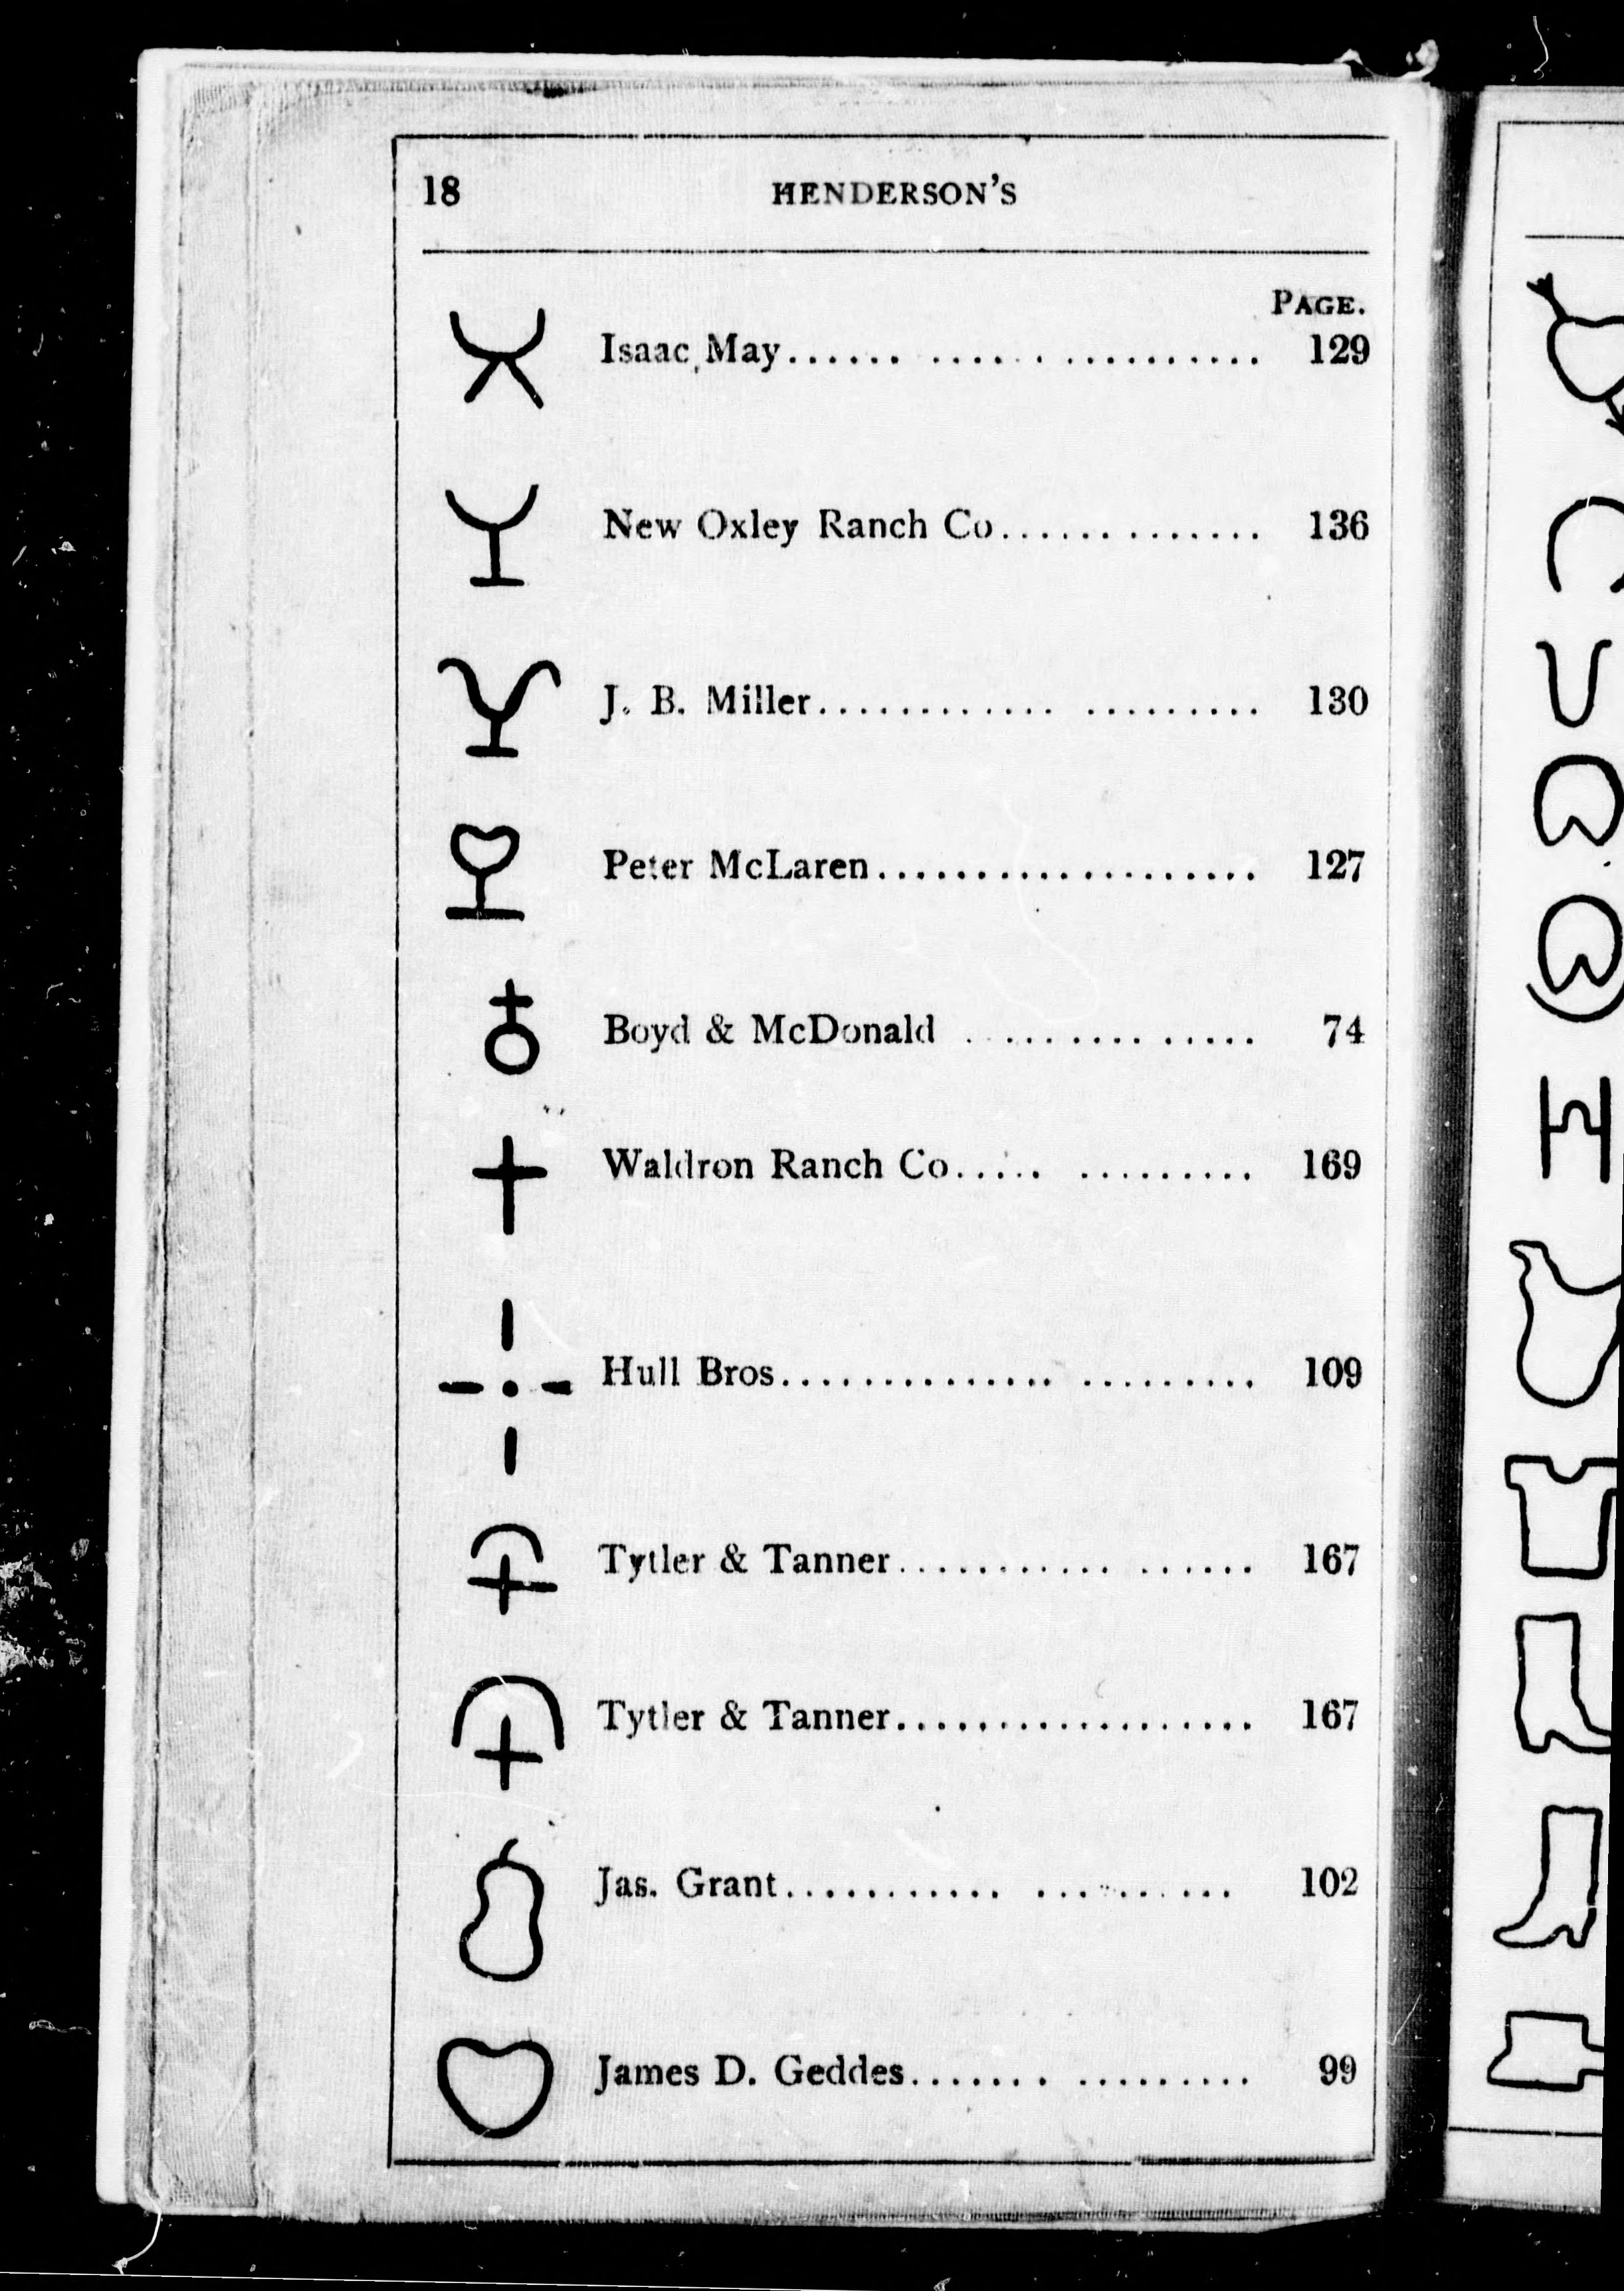 18 HENDERSON'S
PAGE.
Isaac May...... .... . .......... 129
New Oxley Ranch Co............. 136
J. B. Miller............. ......... 130
Peter McLaren.................... 127
Boyd & McDonald . ......... ..... 74
Waldron Ranch Co..... ......... 169
Hull Bros.............. ......... 109
Tytler & Tanner........... ...... 167
Tytler & Tanner.................. 167
Jas. Grant........... .......... 102
James D. Geddes....... ......... 99